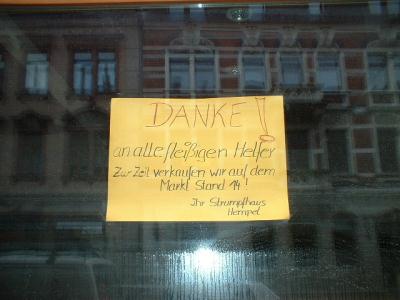 DANKE!
an alle fleißigen Helfer
Zur Zeit verkaufen wir auf dem
Markt Stand 14!
Ihr Strumpfhaus
Hempel